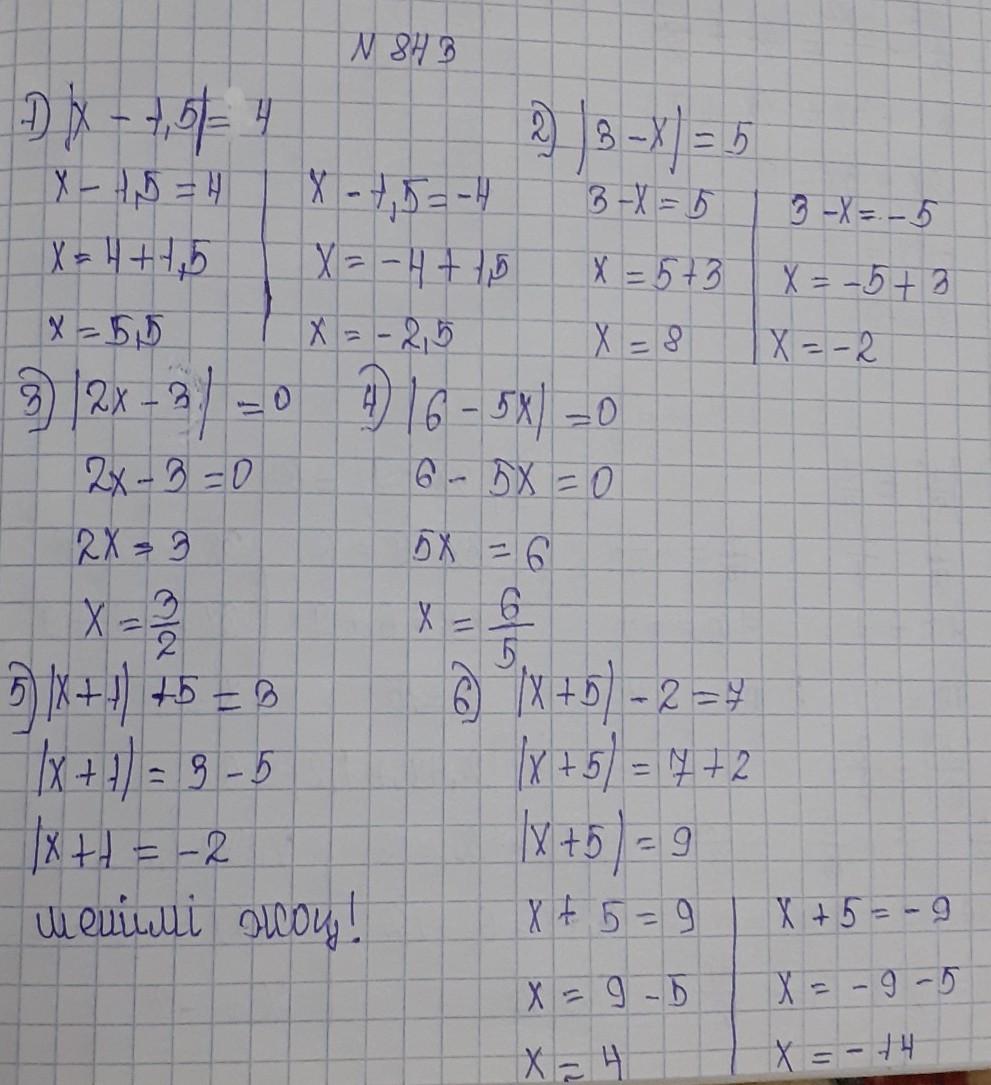 N 843
1) |x - 1,5| = 4
x - 1,5 = 4 | x - 1,5 = -4
x = 4 + 1,5 | x = -4 + 1,5
x = 5,5 | x = -2,5
2) |3 - x| = 5
3 - x = 5 | 3 - x = -5
x = 5 + 3 | x = -5 + 3
x = 8 | x = -2
3) |2x - 3| = 0
2x - 3 = 0
2x = 3
x = 3/2
4) |6 - 5x| = 0
6 - 5x = 0
5x = 6
x = 6/5
5) |x + 1| + 5 = 3
|x + 1| = 3 - 5
|x + 1 = -2
шешімі жоқ!
6) |x + 5| - 2 = 7
|x + 5| = 7 + 2
|x + 5| = 9
x + 5 = 9 | x + 5 = -9
x = 9 - 5 | x = -9 - 5
x = 4 | x = -14